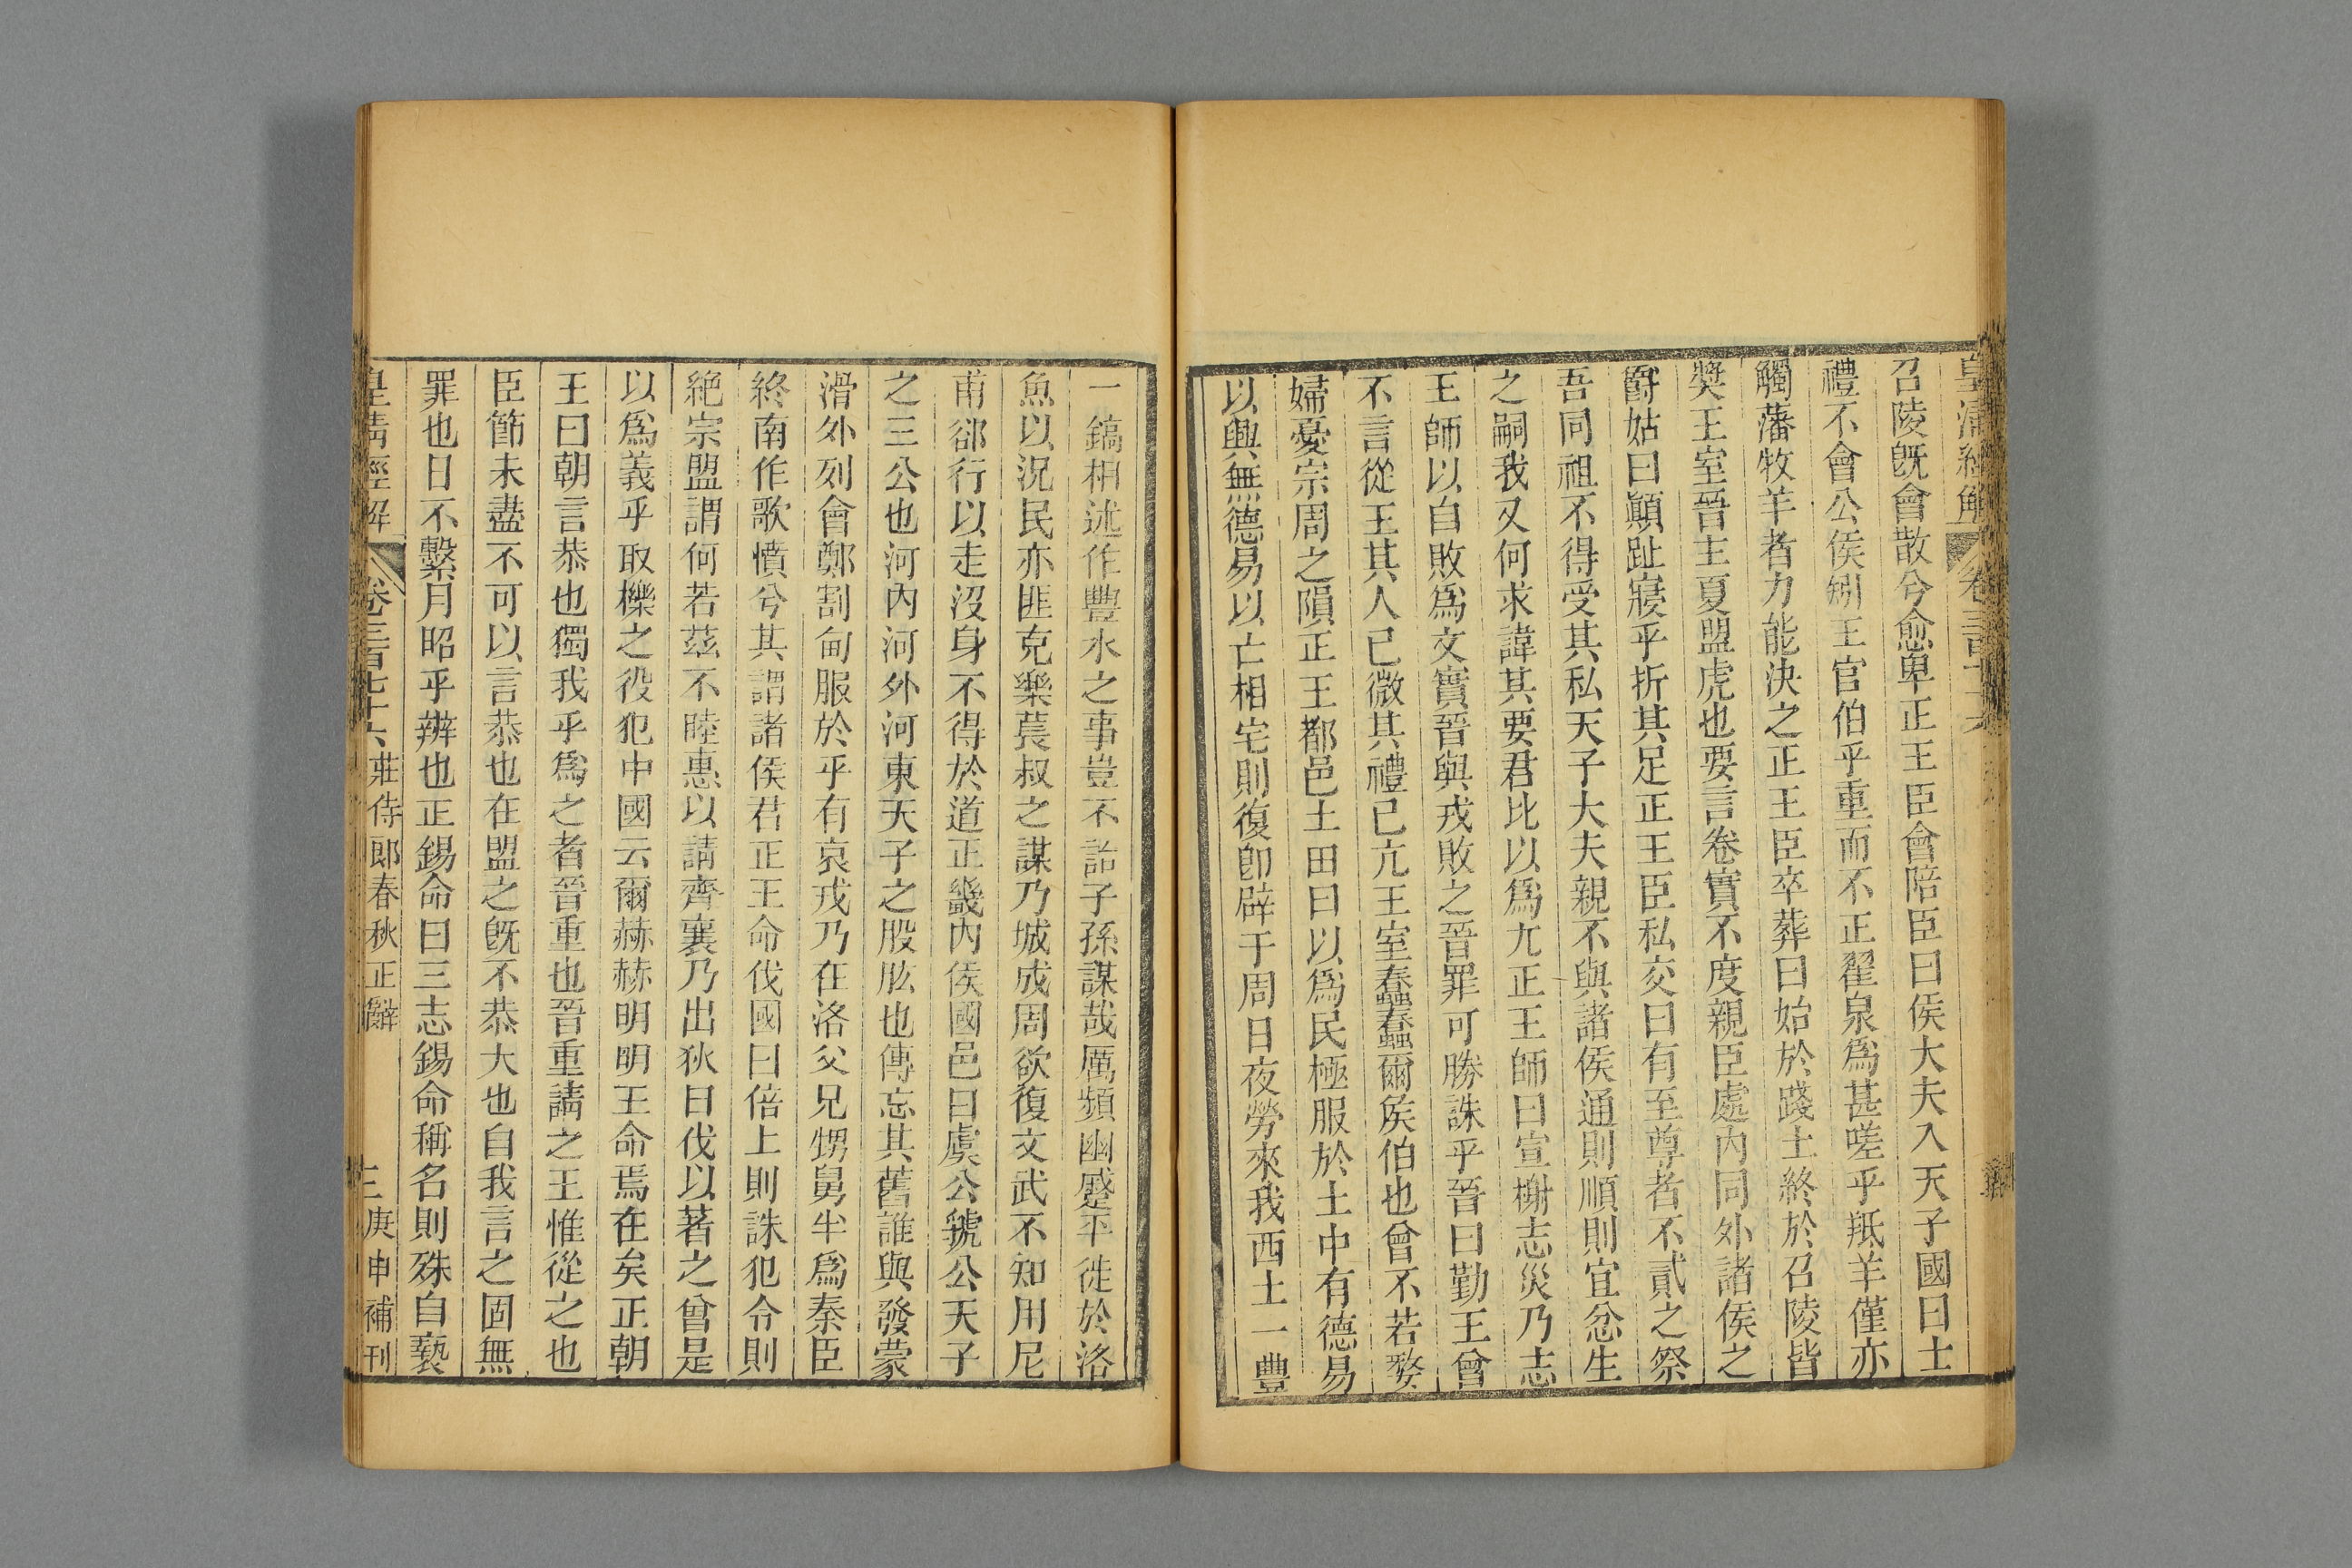 皇清經解 卷三百七十六
召陵旣會散兮愈卑正王臣會陪臣曰侯大夫入天子國曰士
禮不會公侯矧王官伯乎重而不正翟泉爲甚嗟乎羝羊僅亦
觸藩牧羊者力能決之正王臣卒葬曰始於踐土終於召陵皆
獎王室晉主夏盟虎也要言卷實不度親臣處內同外諸侯之
爵姑曰顚趾寢乎折其足正王臣私交曰有至尊者不貳之祭
吾同祖不得受其私天子大夫親不與諸侯通則順則宜忿生
之嗣我又何求諱其要君比以爲尤正王師曰宣榭志災乃志
王師以自敗爲文實晉與戎敗之晉罪可勝誅乎晉曰勤王曾
不言從王其人已微其禮已亢王室蠢蠢爾侯伯也曾不若嫠
婦憂宗周之隕正王都邑土田曰以爲民極服於土中有德易
以興無德易以亡相宅則復卽辟于周日夜勞來我西土一豐
一鎬相述作豐水之事豈不詒子孫謀哉厲頻幽蹙平徙於洛
魚以況民亦匪克樂萇叔之謀乃城成周欲復文武不知用尼
甫郤行以走沒身不得於道正畿內侯國邑曰虞公虢公天子
之三公也河內河外河東天子之股肱也傳忘其舊誰與發蒙
滑外列會鄭割甸服於乎有哀戎乃在洛父兄甥舅半爲秦臣
終南作歌憤兮其謂諸侯君正王命伐國曰倍上則誅犯令則
絕宗盟謂何若茲不睦惠以請齊襄乃出狄日伐以著之曾是
以爲義乎取櫟之役犯中國云爾赫赫明明王命焉在矣正朝
王曰朝言恭也獨我乎爲之者晉重也晉重請之王惟從之也
臣節未盡不可以言恭也在盟之旣不恭大也自我言之固無
罪也日不繫月昭乎辨也正錫命曰三志錫命稱名則殊自褻
皇清經解 卷三百七十六 莊侍郎春秋正辭 三 庚申補刊